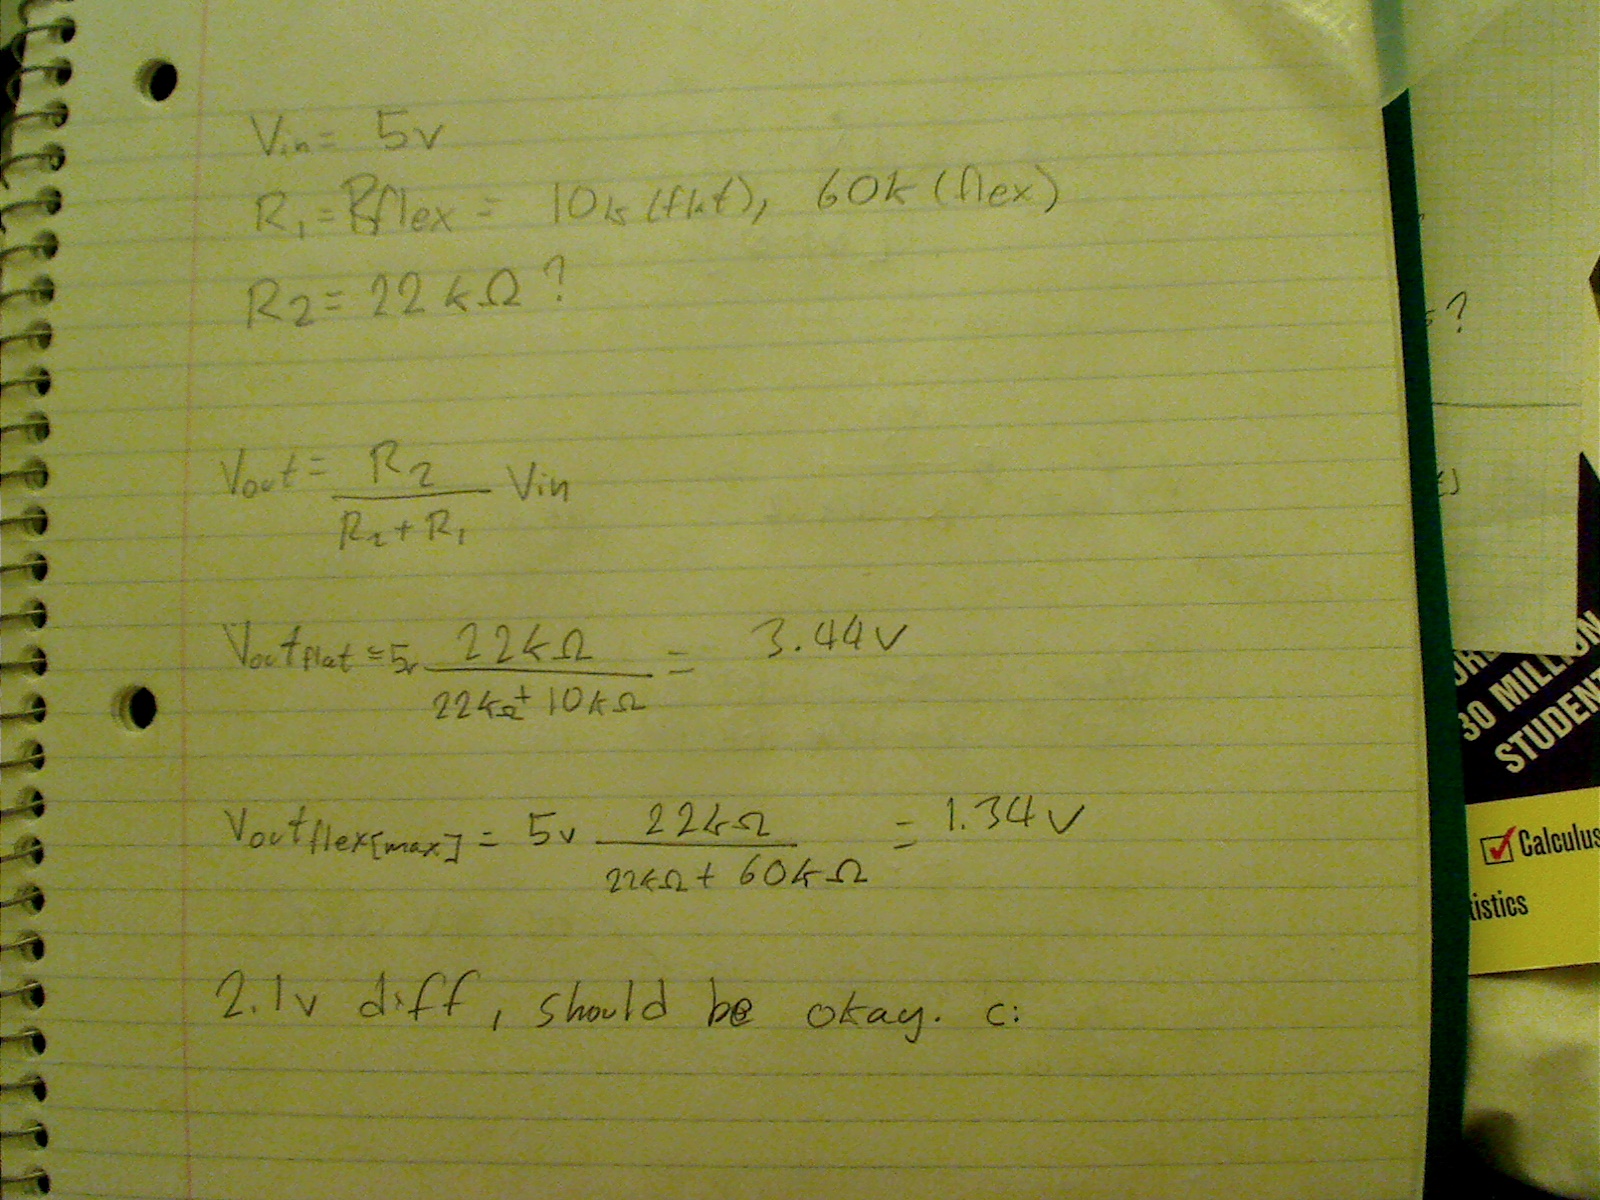 Vin = 5v
R1 = Rflex = 10k (flat), 60k (flex)
R2 = 22kΩ ?
Vout = R2 / (R2 + R1) Vin
Voutflat = 5v 22kΩ / (22kΩ + 10kΩ) = 3.44v
Voutflex[max] = 5v 22kΩ / (22kΩ + 60kΩ) = 1.34v
2.1v diff, should be okay. c:
?
30 MILLION
STUDENT
Calculus
tistics